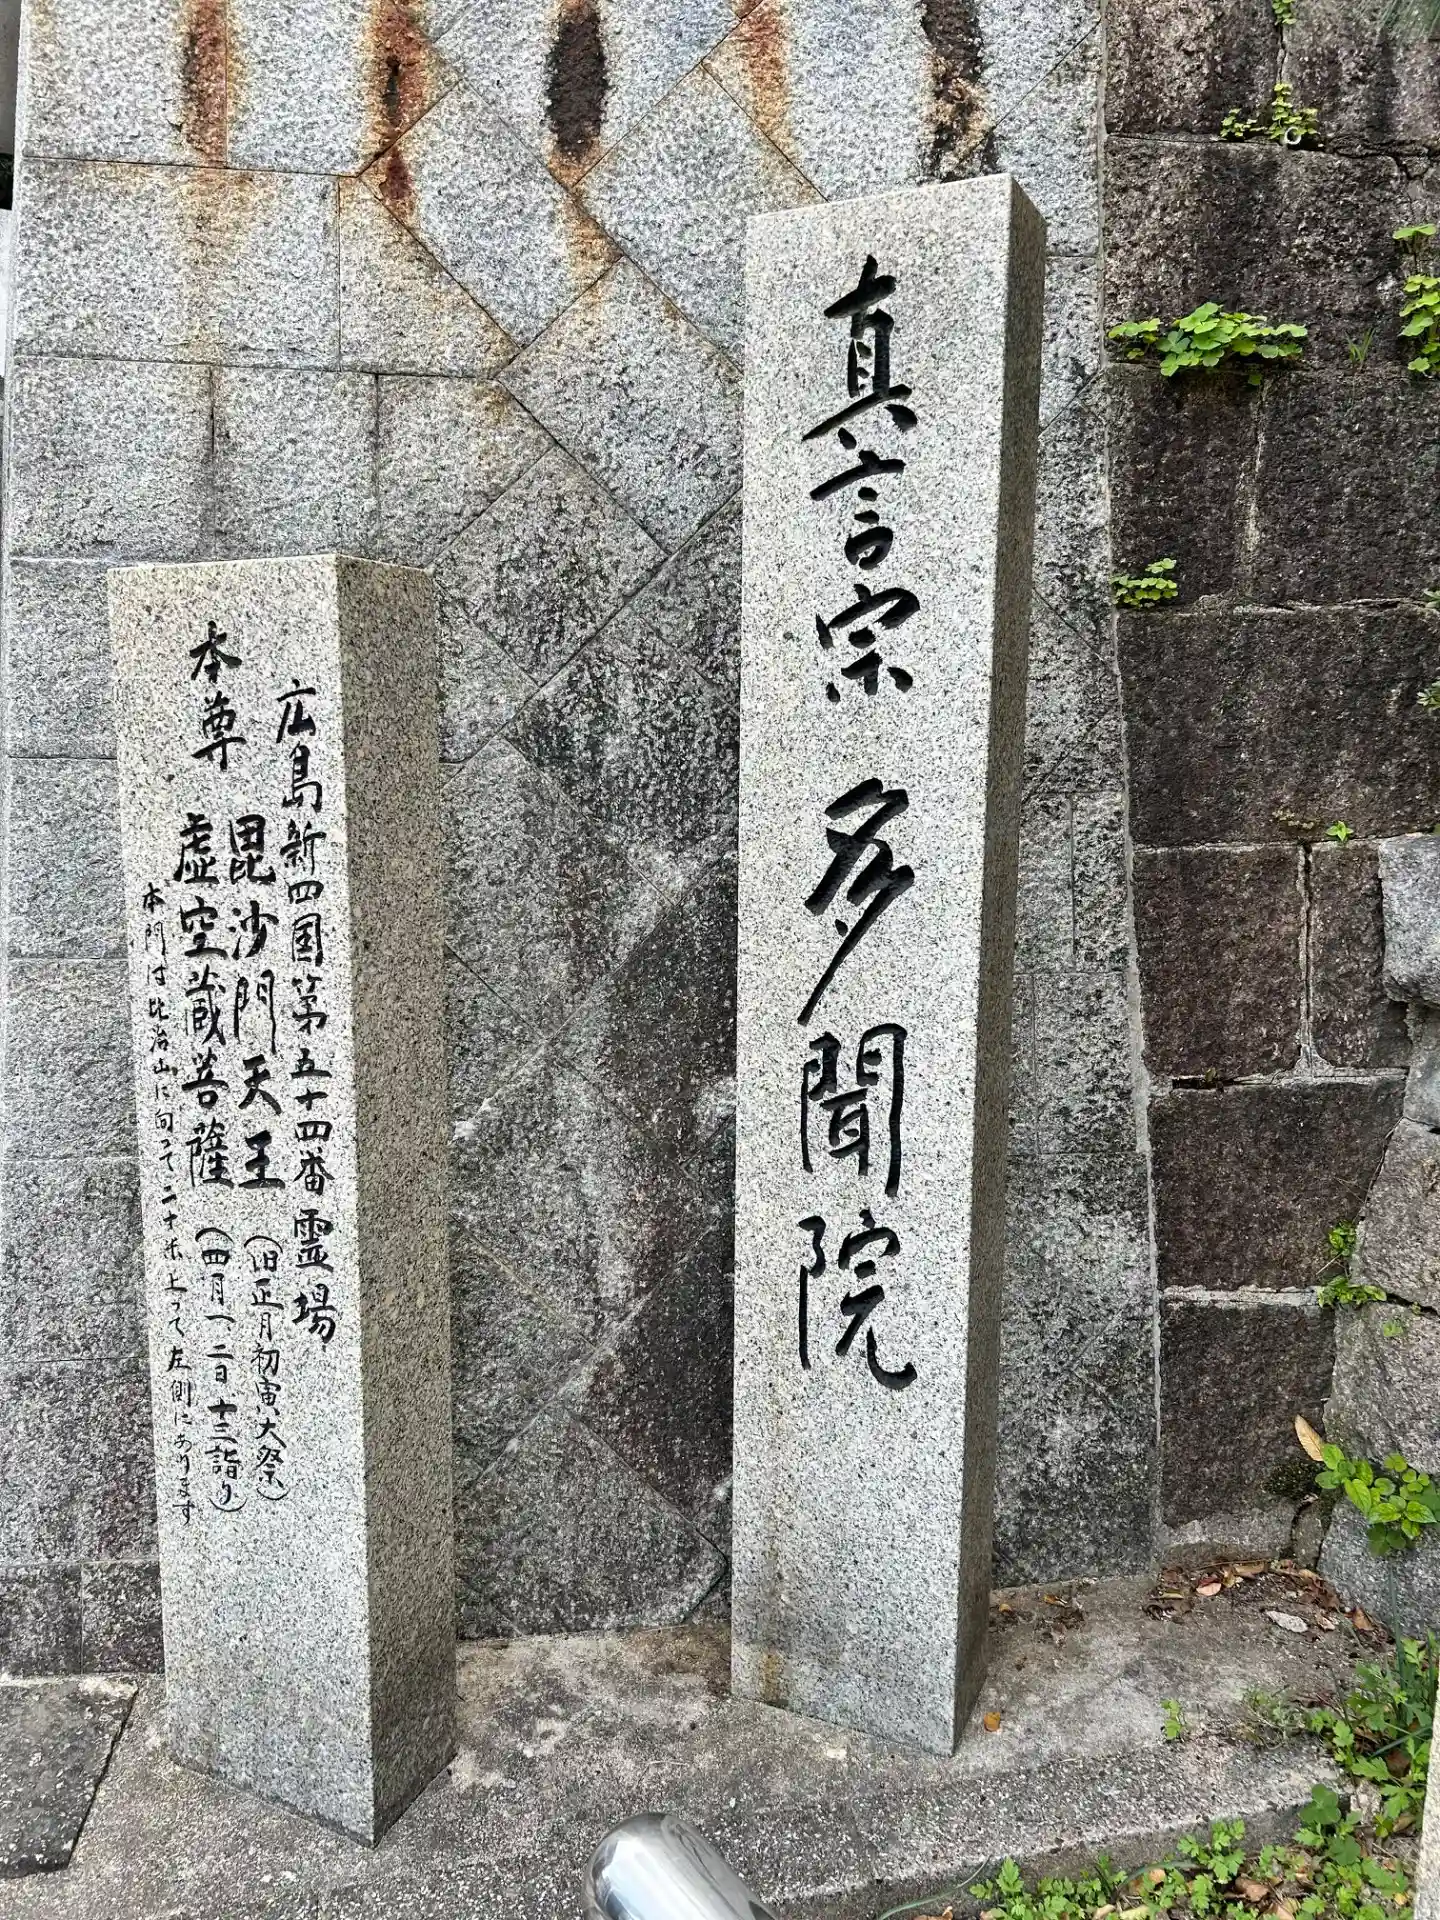 真言宗 多聞院
広島新四国第五十四番霊場
本尊
毘沙門天王（旧正月初寅大祭）
虚空蔵菩薩（四月一二日十三詣り）
本門は比治山に向って二十米上って左側にあります